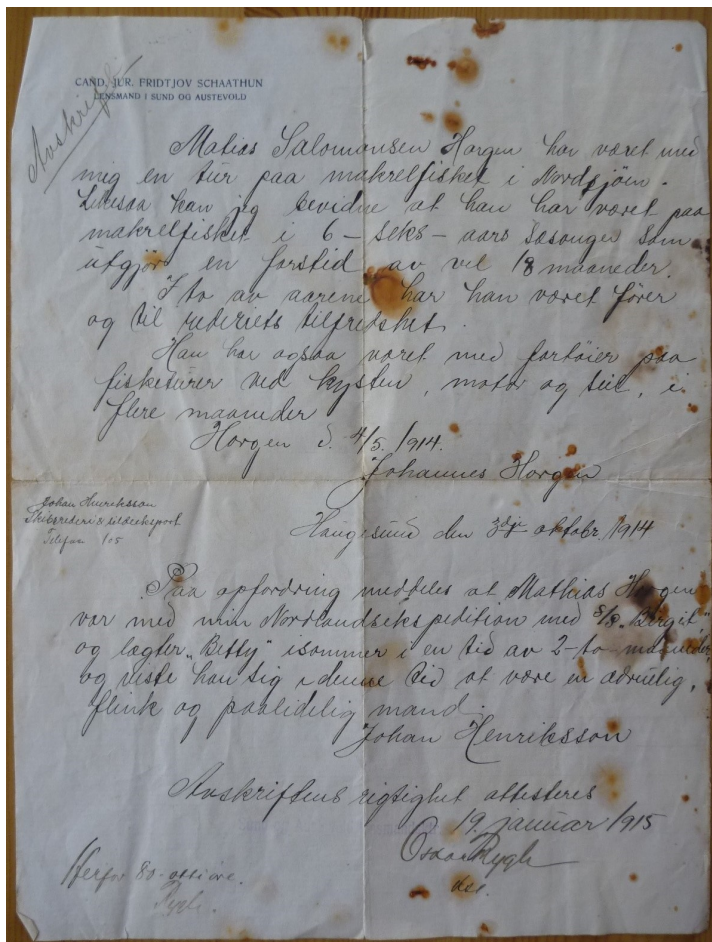 Avskrift
CAND. JUR. FRIDTJOV SCHAATHUN
LENSMAND I SUND OG AUSTEVOLD
Matias Salomonsen Horgen har været med
mig en tur paa makrelfisket i Nordsjøen.
Likesaa kan jeg bevidne at han har været paa
makrelfisket i 6 - seks - aars sæsonger som
utgjør en farstid av vel 18 maaneder.
I to av aarene har han været fører
og til rederiets tilfredshet.
Han har ogsaa været med fartøier paa
fisketurer ved kysten, motor og seil, i
flere maaneder
Horgen d. 4/5. 1914.
Johannes Horgen
Johan Henriksson
Skibsrederi & sildeeksport
Telefon 105
Haugesund den 3dje oktobr. 1914
Paa opfordring meddeles at Mathias Horgen
var med min Nordlandsekspedition med S/S „Bergit"
og lægter „Betty" isommer i en tid av 2-to maaneder,
og viste han sig i denne tid at være en ædruelig,
flink og paalidelig mand.
Johan Henriksson
Avskriftens rigtighet attesteres
19. januar 1915
Oscar Rygh
Herfor 80-otti øre.
Rygh.